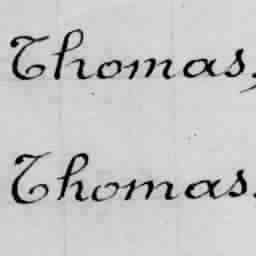 Thomas,
Thomas.